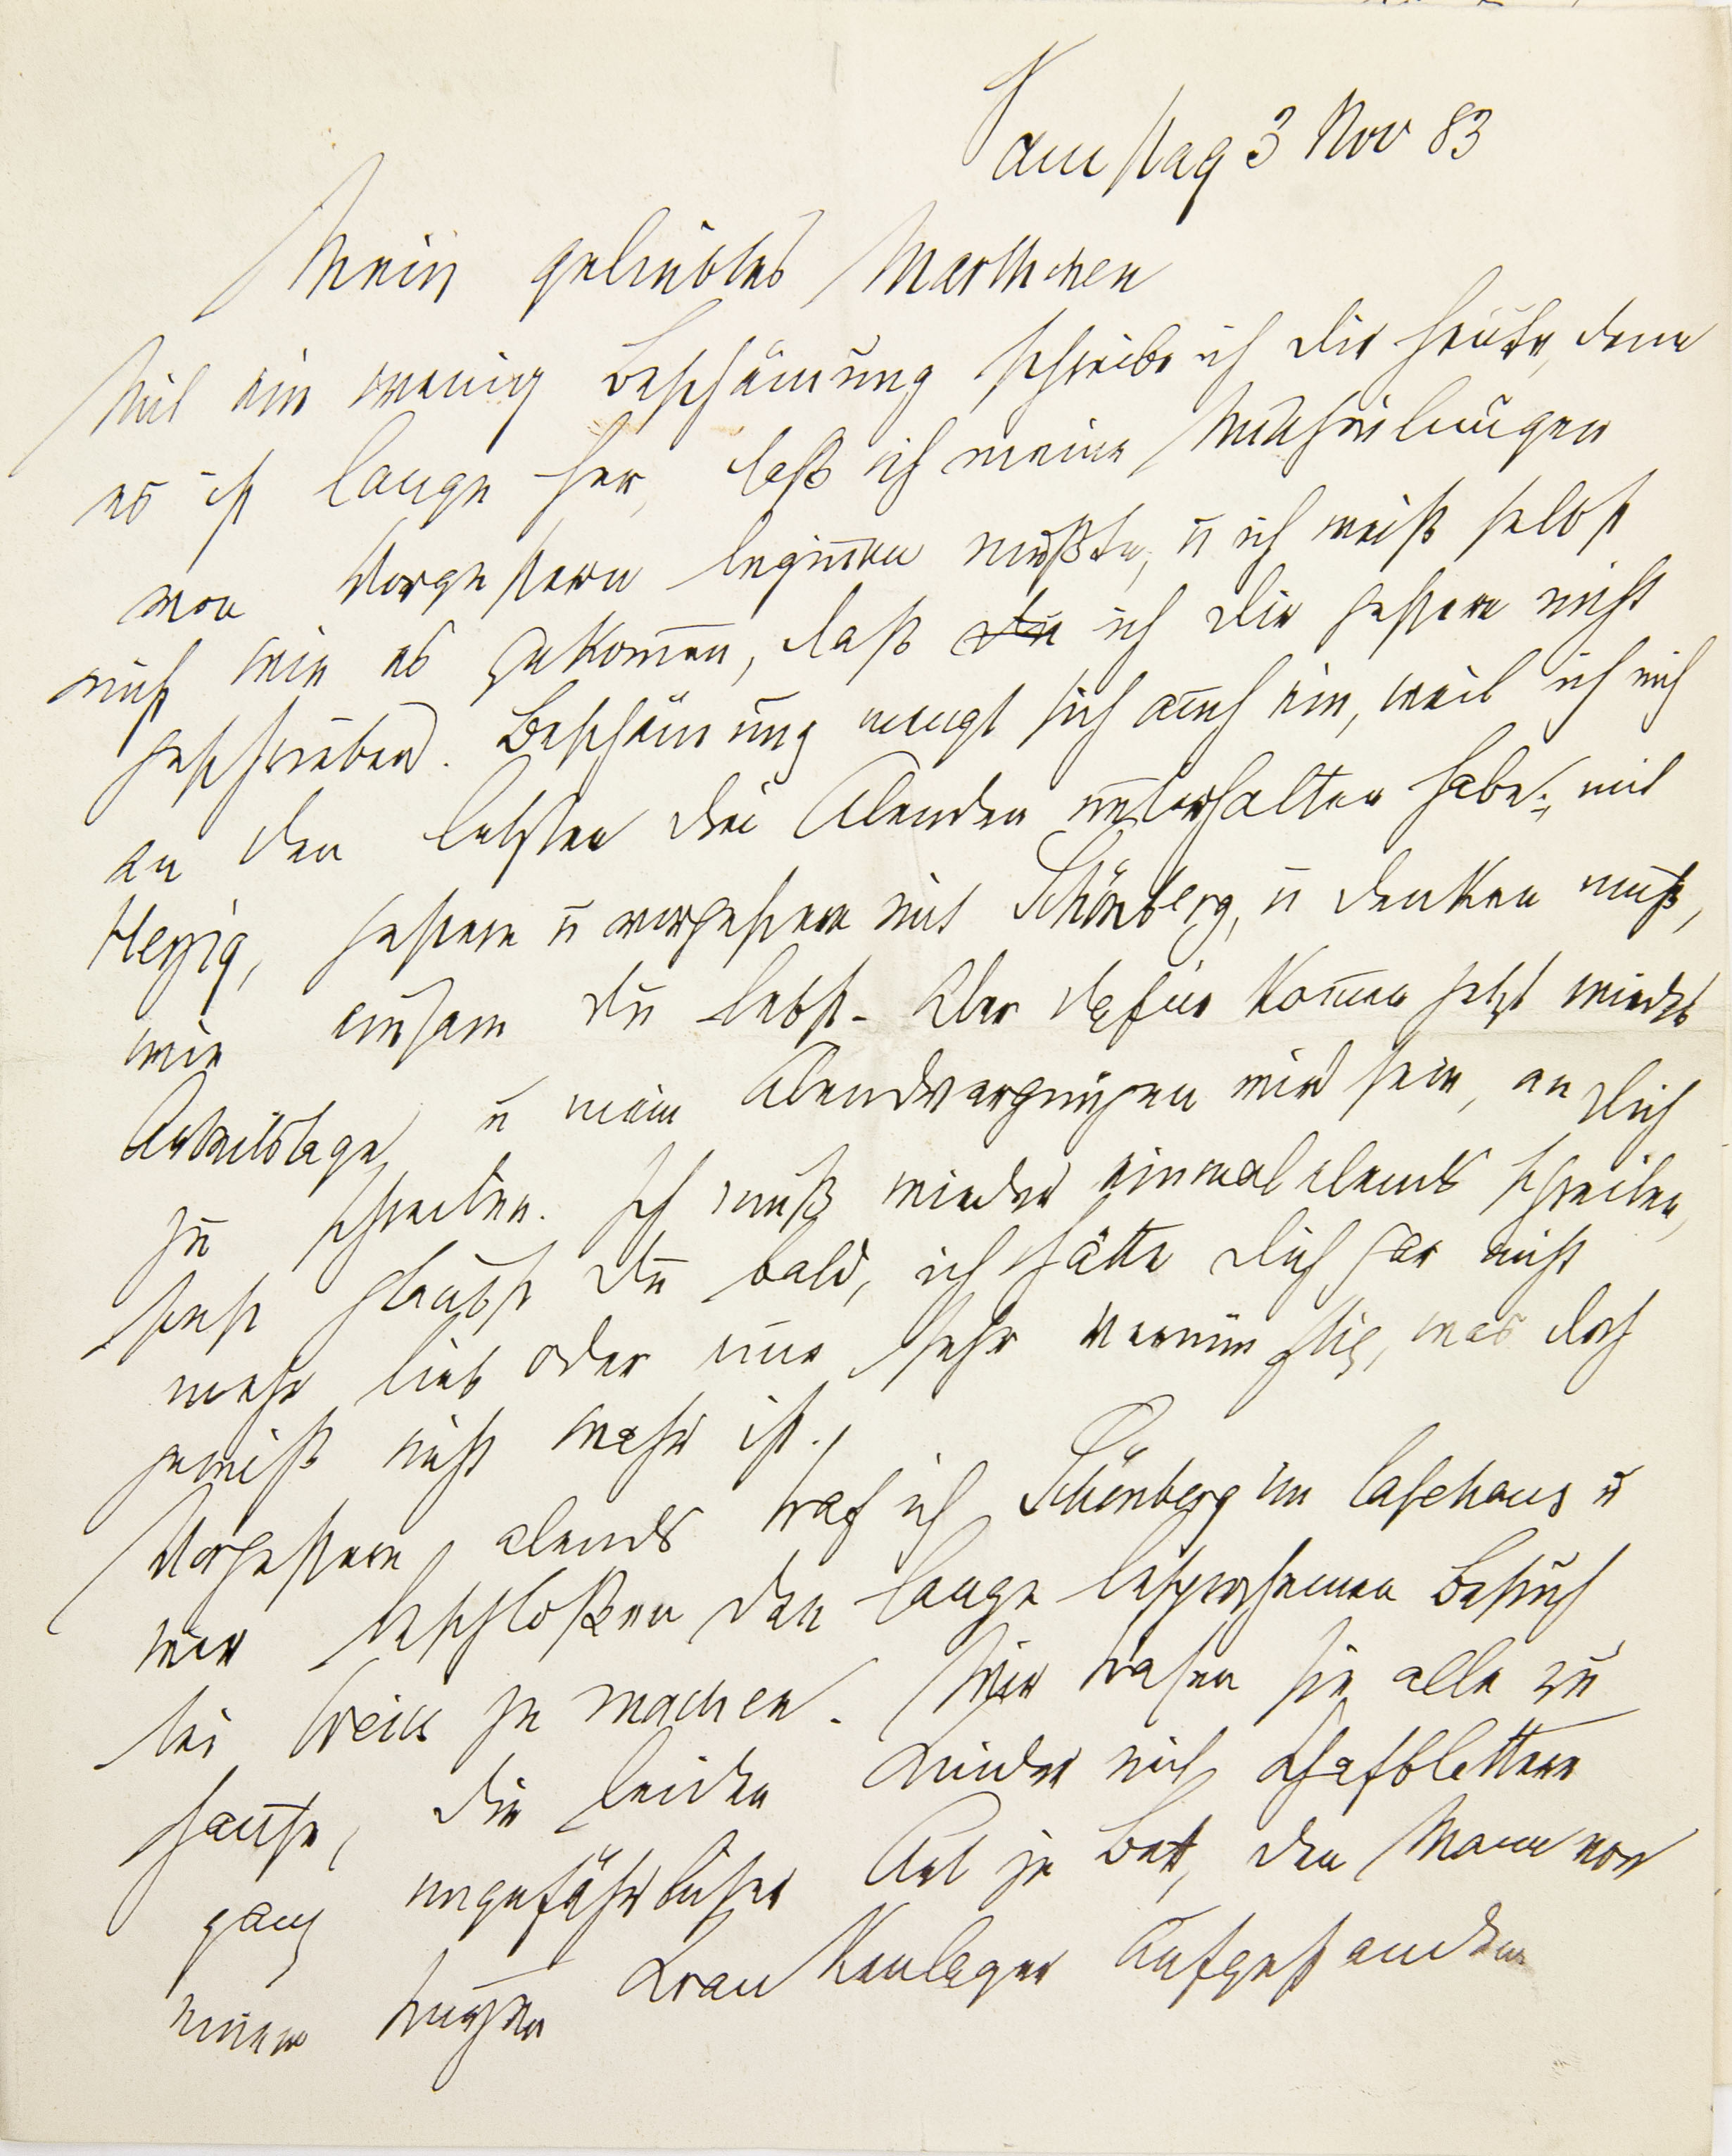 Samstag 3 Nov 83
Mein geliebtes Marthchen
Mit ein wenig Beschämung schreibe ich Dir heute, denn
es ist lange her, daß ich meine Mittheilungen
von Vorgestern beginnen mußte, u ich weiß selbst
nicht wie es gekom̅en, daß du ich Dir gestern nicht
geschrieben. Beschämung mengt sich auch ein, weil ich mich
an den letzten drei Abenden unterhalten habe, mit
Herzig, gestern u vorgestern mit Schönberg, u denken muß,
wie einsam Du lebst. Aber dafür kom̅en jetzt wieder
Arbeitstage u mein Abendvergnügen wird sein, an Dich
zu schreiben. Ich muß wieder einmal abends schreiben,
sonst glaubst Du bald, ich hätte Dich gar nicht
mehr lieb oder nur sehr vernünftig, was doch
gewiß nicht wahr ist.
Vorgestern abends traf ich Schönberg im Cafehaus u
wir beschloßen den lange besprochenen Besuch
bei Weiss zu machen. Wir trafen sie alle zu
Hause, die beiden Kinder mit Schafblattern
ganz ungefährlicher Art zu Bett, den Mann von
einem kurzen Krankenlager aufgestanden